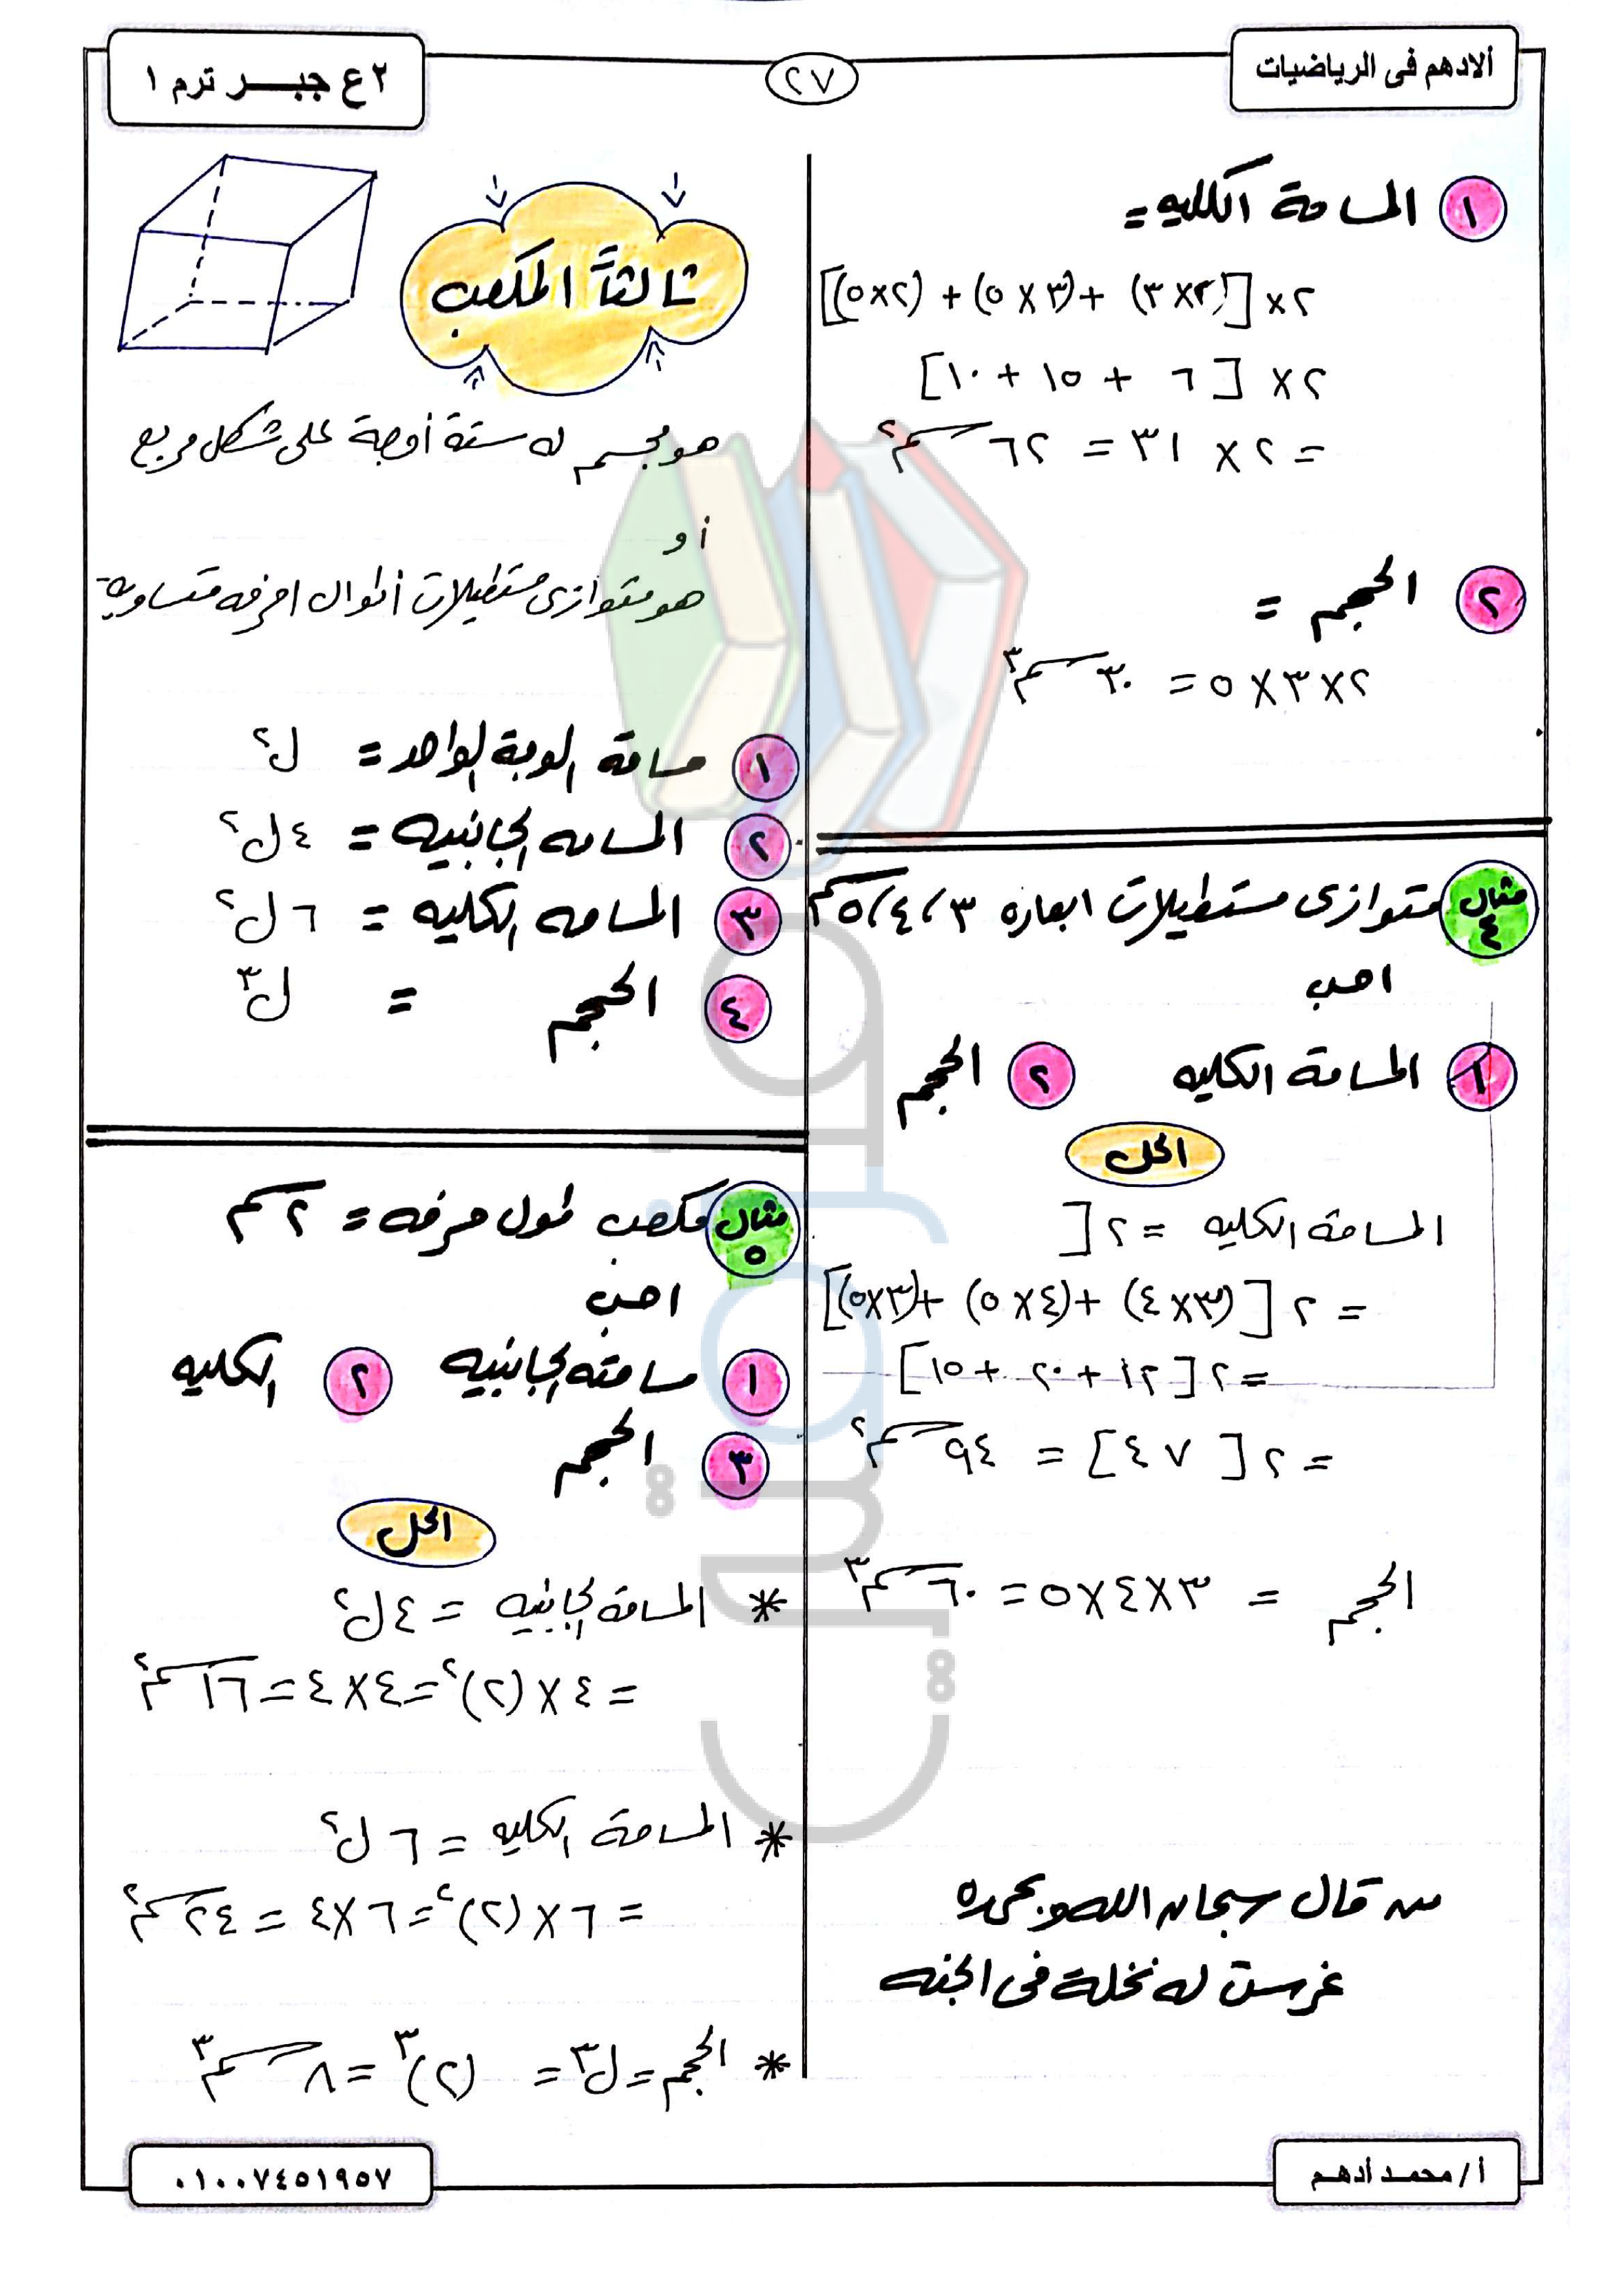 ألادهم فى الرياضيات
٢٧
٢ ع جبـــر ترم ١
١ المساحة الكليه =
٢ × [(٢×٣) + (٣×٥) + (٢×٥)]
٢ × [٦ + ١٥ + ١٠]
= ٢ × ٣١ = ٦٢ سم٢
٢ الحجم =
٢×٣×٥ = ٣٠ سم٣
مثال ٤ متوازى مستطيلات ابعاده ٣،٤،٥ سم
احسب
١ المساحة الكليه ٢ الحجم
الحل
المساحة الكليه = ٢ [
= ٢ [(٣×٤) + (٤×٥) + (٣×٥)]
= ٢ [١٢ + ٢٠ + ١٥]
= ٢ [٤٧] = ٩٤ سم٢
الحجم = ٣×٤×٥ = ٦٠ سم٣
من قال سبحان الله وبحمده
غرست له نخلة فى الجنه
ثالثاً المكعب
هو مجسم له ستة أوجة على شكل مربع
أو
هو متوازى مستطيلات أطوال احرفه متساويه
١ مساحة الوجة الواحد = ل٢
٢ المساحه الجانبيه = ٤ل٢
٣ المساحه الكليه = ٦ل٢
٤ الحجم = ل٣
مثال ٥ مكعب طول حرفه = ٢ سم
احسب
١ مساحته الجانبيه ٢ الكليه
٣ الحجم
الحل
* المساحة الجانبيه = ٤ل٢
= ٤ × (٢)٢ = ٤×٤ = ١٦ سم٢
* المساحة الكليه = ٦ل٢
= ٦ × (٢)٢ = ٦×٤ = ٢٤ سم٢
* الحجم = ل٣ = (٢)٣ = ٨ سم٣
أ / محمد أدهم
٠١٠٠٧٤٥١٩٥٧